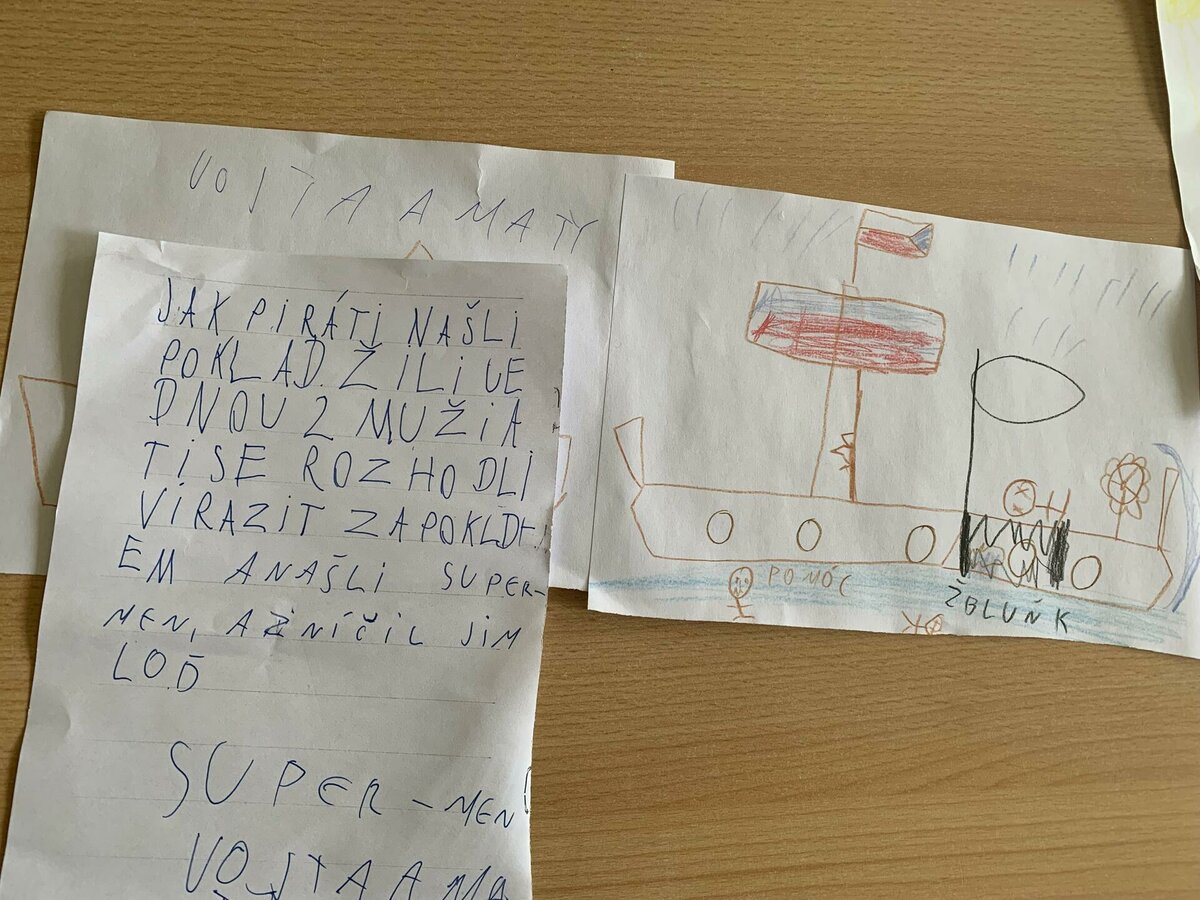 VOJTA A MATY
JAK PIRÁTI NAŠLI
POKLAD. ŽILI VE
DNOU 2 MUŽI A
TI SE ROZHODLI
VIRAZIT ZA POKLD
EM A NAŠLI SUPER-
MEN, A ZNÍČIL JIM
LOĎ
SUPER-MEN
VOJTA A MA
POMÓC
ŽBLUŇK